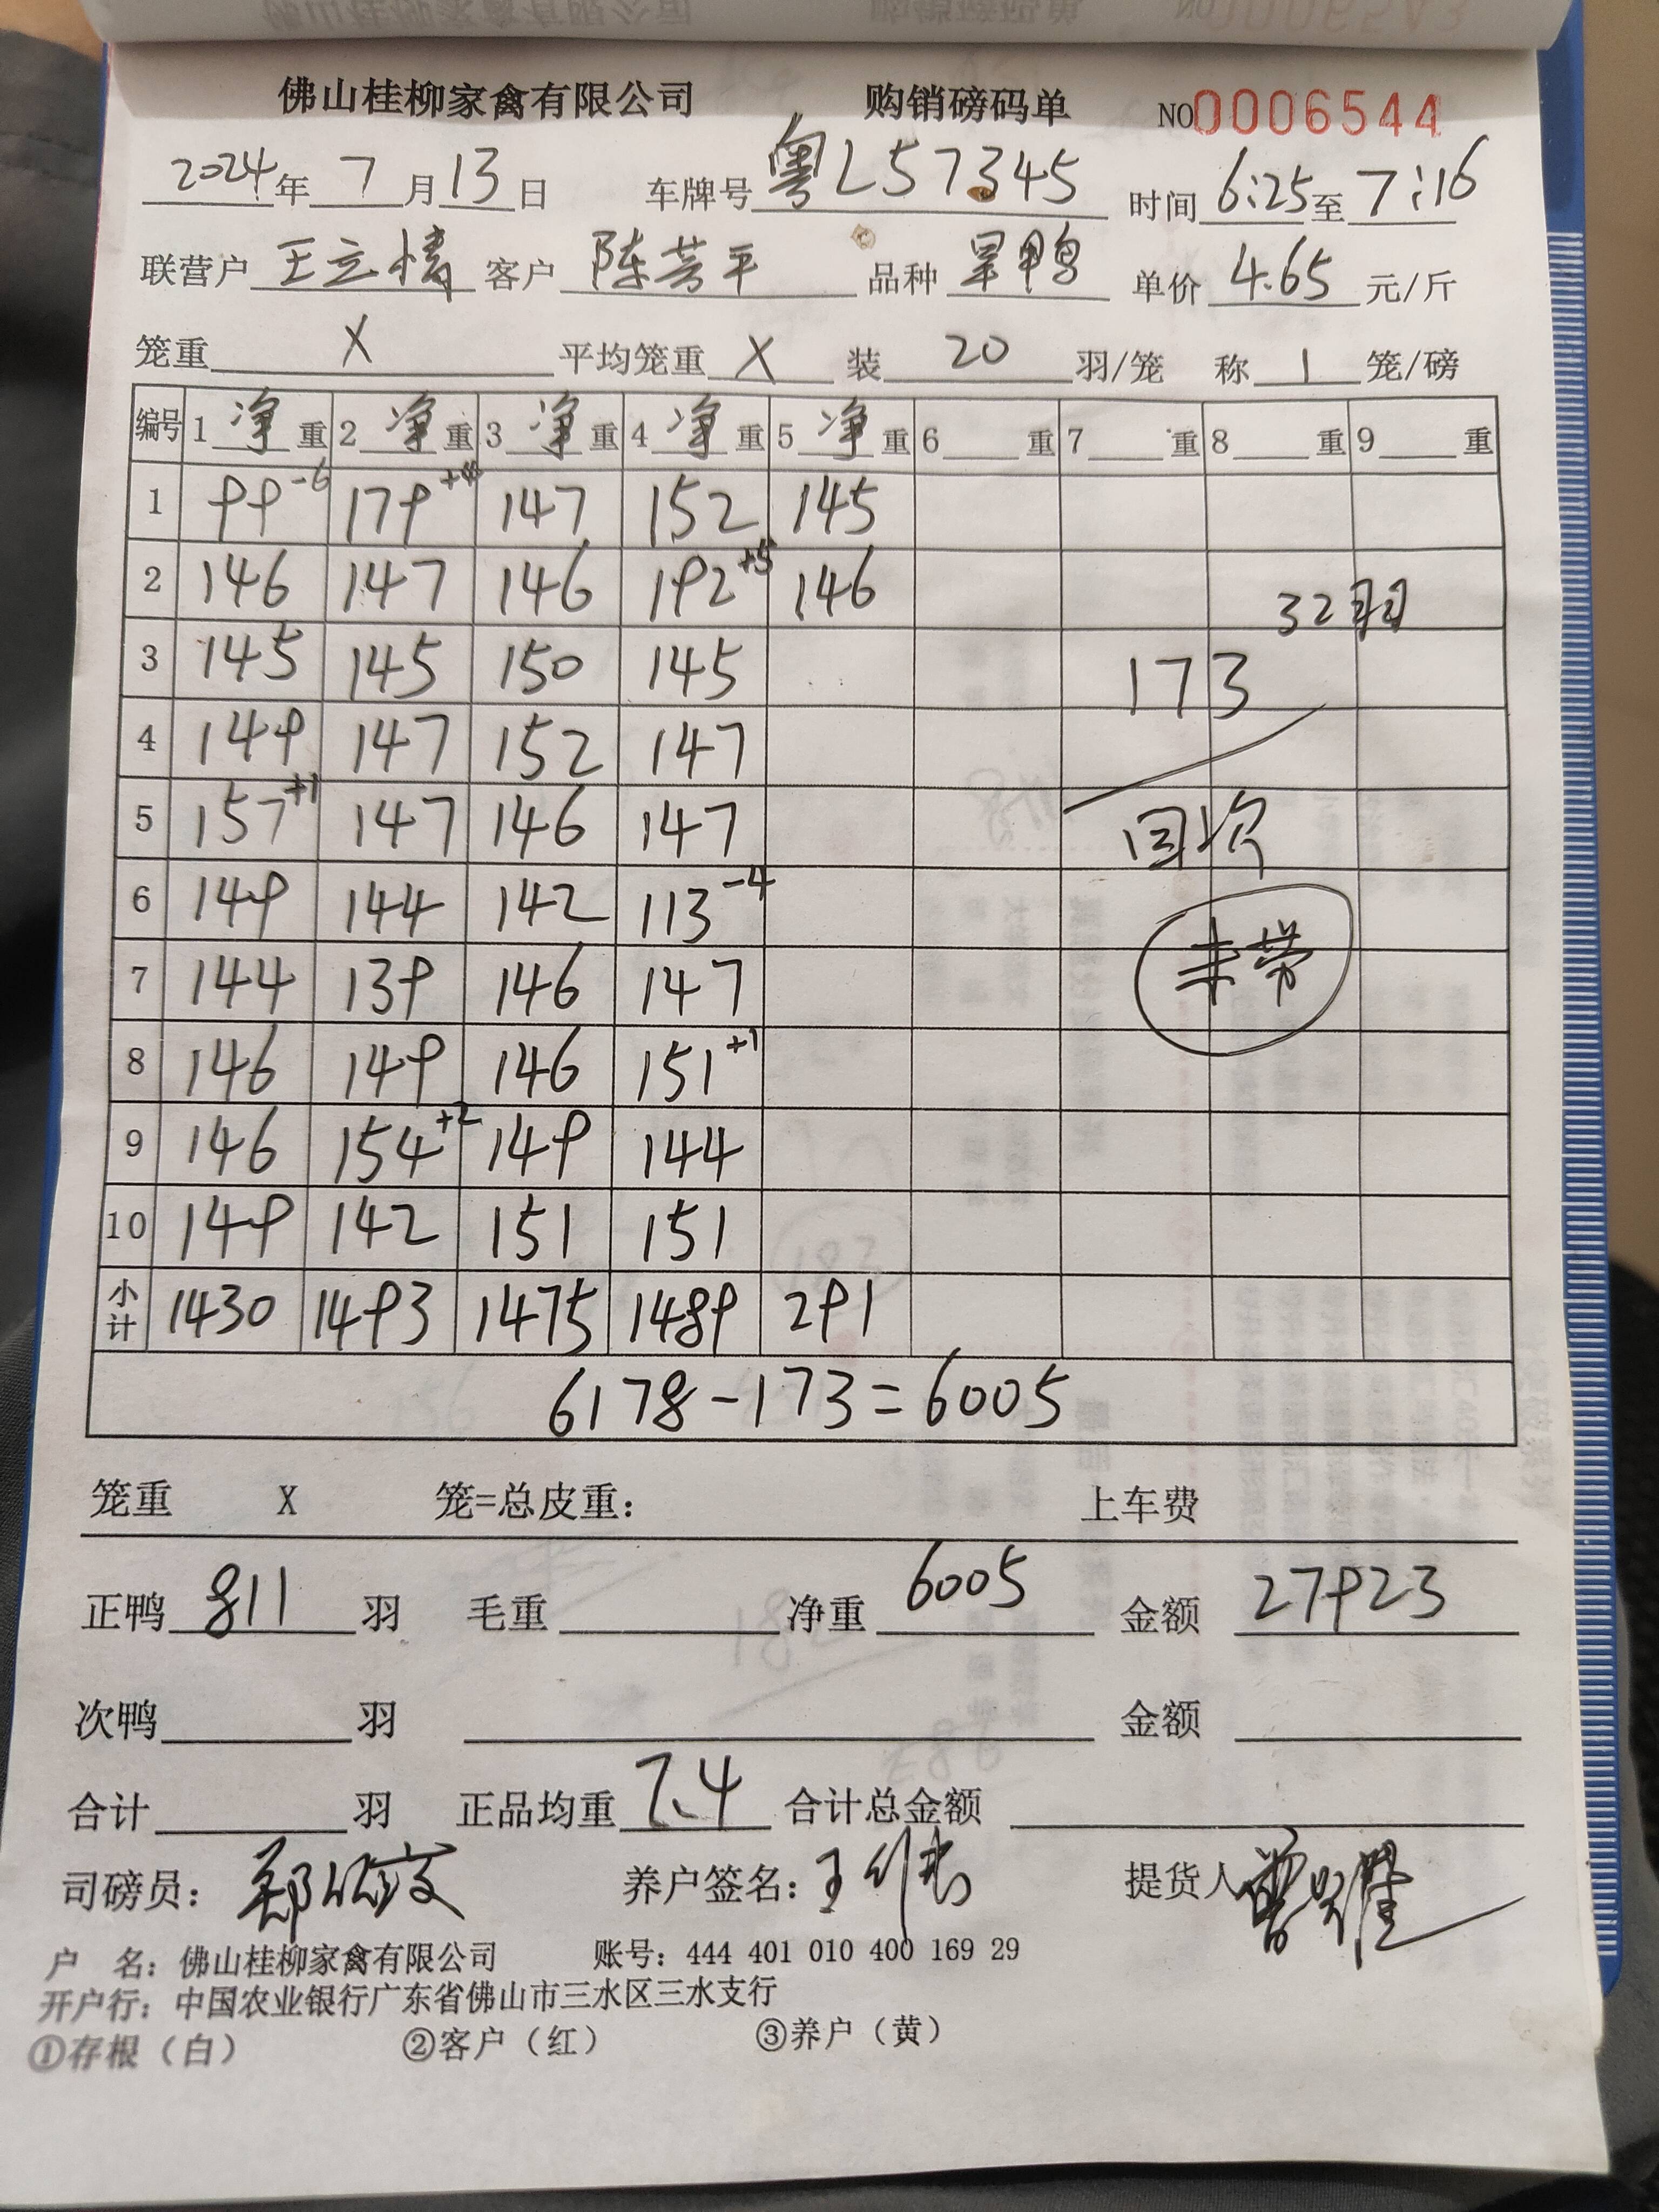 佛山桂柳家禽有限公司 购销磅码单 NO0006544
2024年7月13日 车牌号粤L57345 时间6:25至7:16
联营户王立情 客户陈芳平 品种旱鸭 单价4.65元/斤
笼重X 平均笼重X 装20羽/笼 称1笼/磅
编号 1净重 2净重 3净重 4净重 5净重 6重 7重 8重 9重
1 99-6 179+4 147 152 145
2 146 147 146 192+5 146 32羽
3 145 145 150 145 173
4 149 147 152 147
5 157+1 147 146 147 回次
6 149 144 142 113-4 未带
7 144 139 146 147
8 146 149 146 151+1
9 146 154+2 149 144
10 149 142 151 151
小计 1430 1493 1475 1489 291
6178-173=6005
笼重 X 笼=总皮重： 上车费
正鸭811羽 毛重 净重6005 金额27923
次鸭 羽 金额
合计 羽 正品均重7.4 合计总金额
司磅员： 养户签名： 提货人
户 名：佛山桂柳家禽有限公司 账号：444 401 010 400 169 29
开户行：中国农业银行广东省佛山市三水区三水支行
①存根（白） ②客户（红） ③养户（黄）